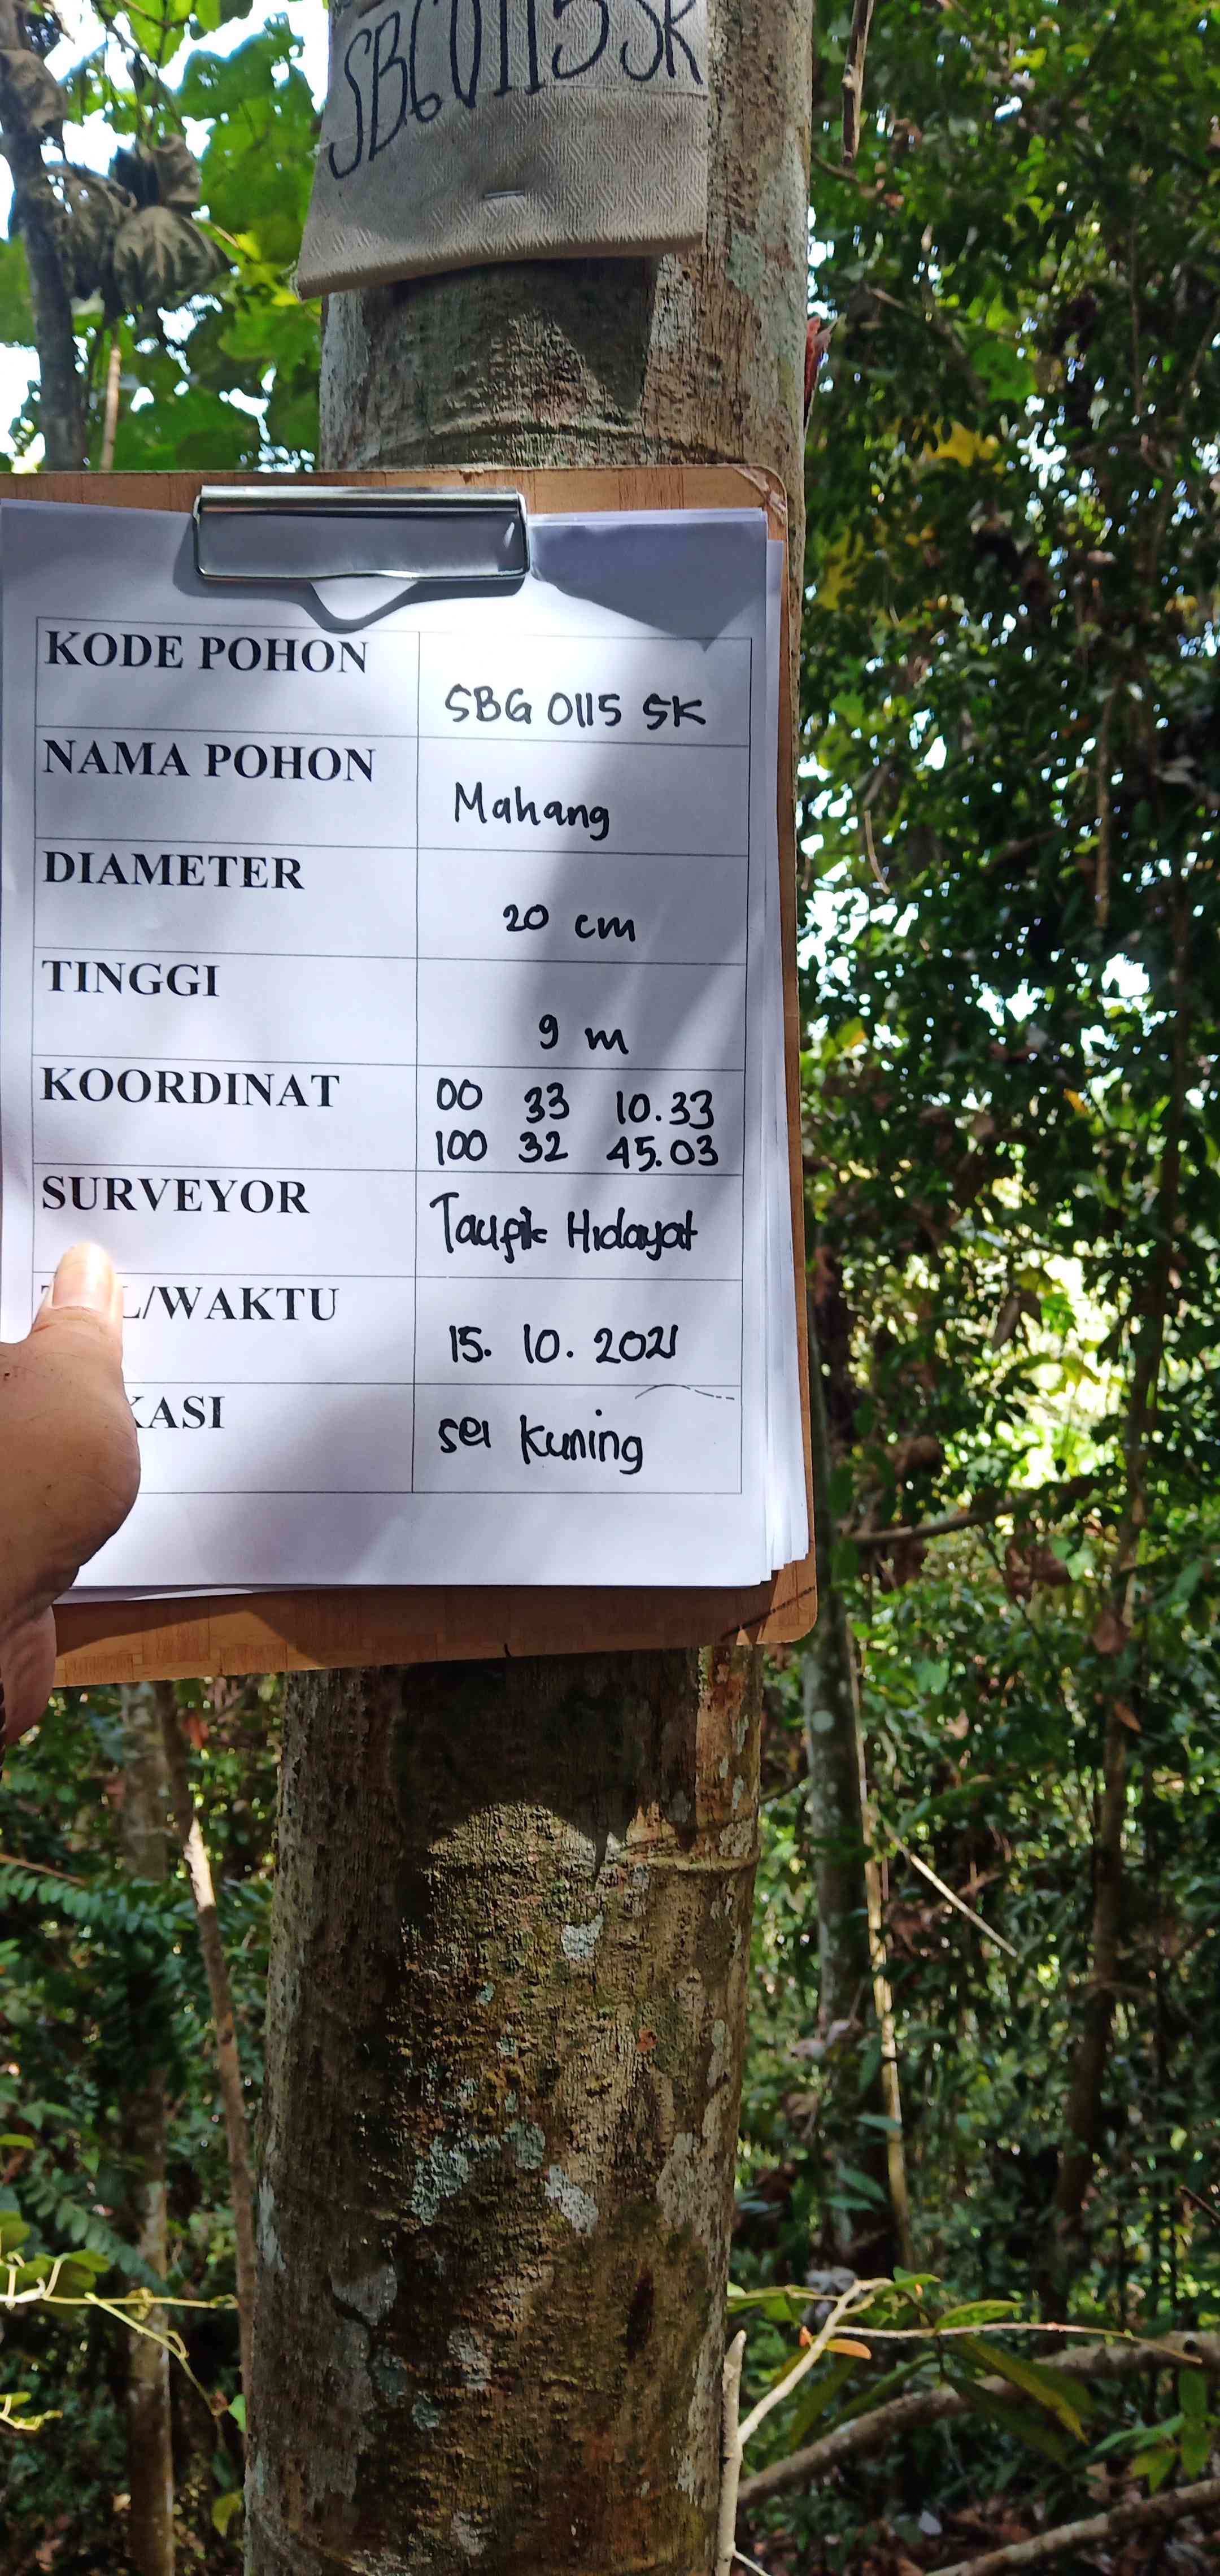 SBG0115SK
KODE POHON
SBG 0115 SK
NAMA POHON
Mahang
DIAMETER
20 cm
TINGGI
9 m
KOORDINAT
00 33 10.33
100 32 45.03
SURVEYOR
Taufik Hidayat
L/WAKTU
15. 10. 2021
KASI
sei Kuning